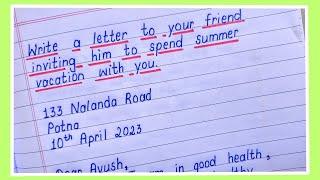 Write a letter to your friend
inviting him to spend summer
vacation with you.
133 Nalanda Road
Patna
10th April 2023
Dear Ayush,
am in good health,